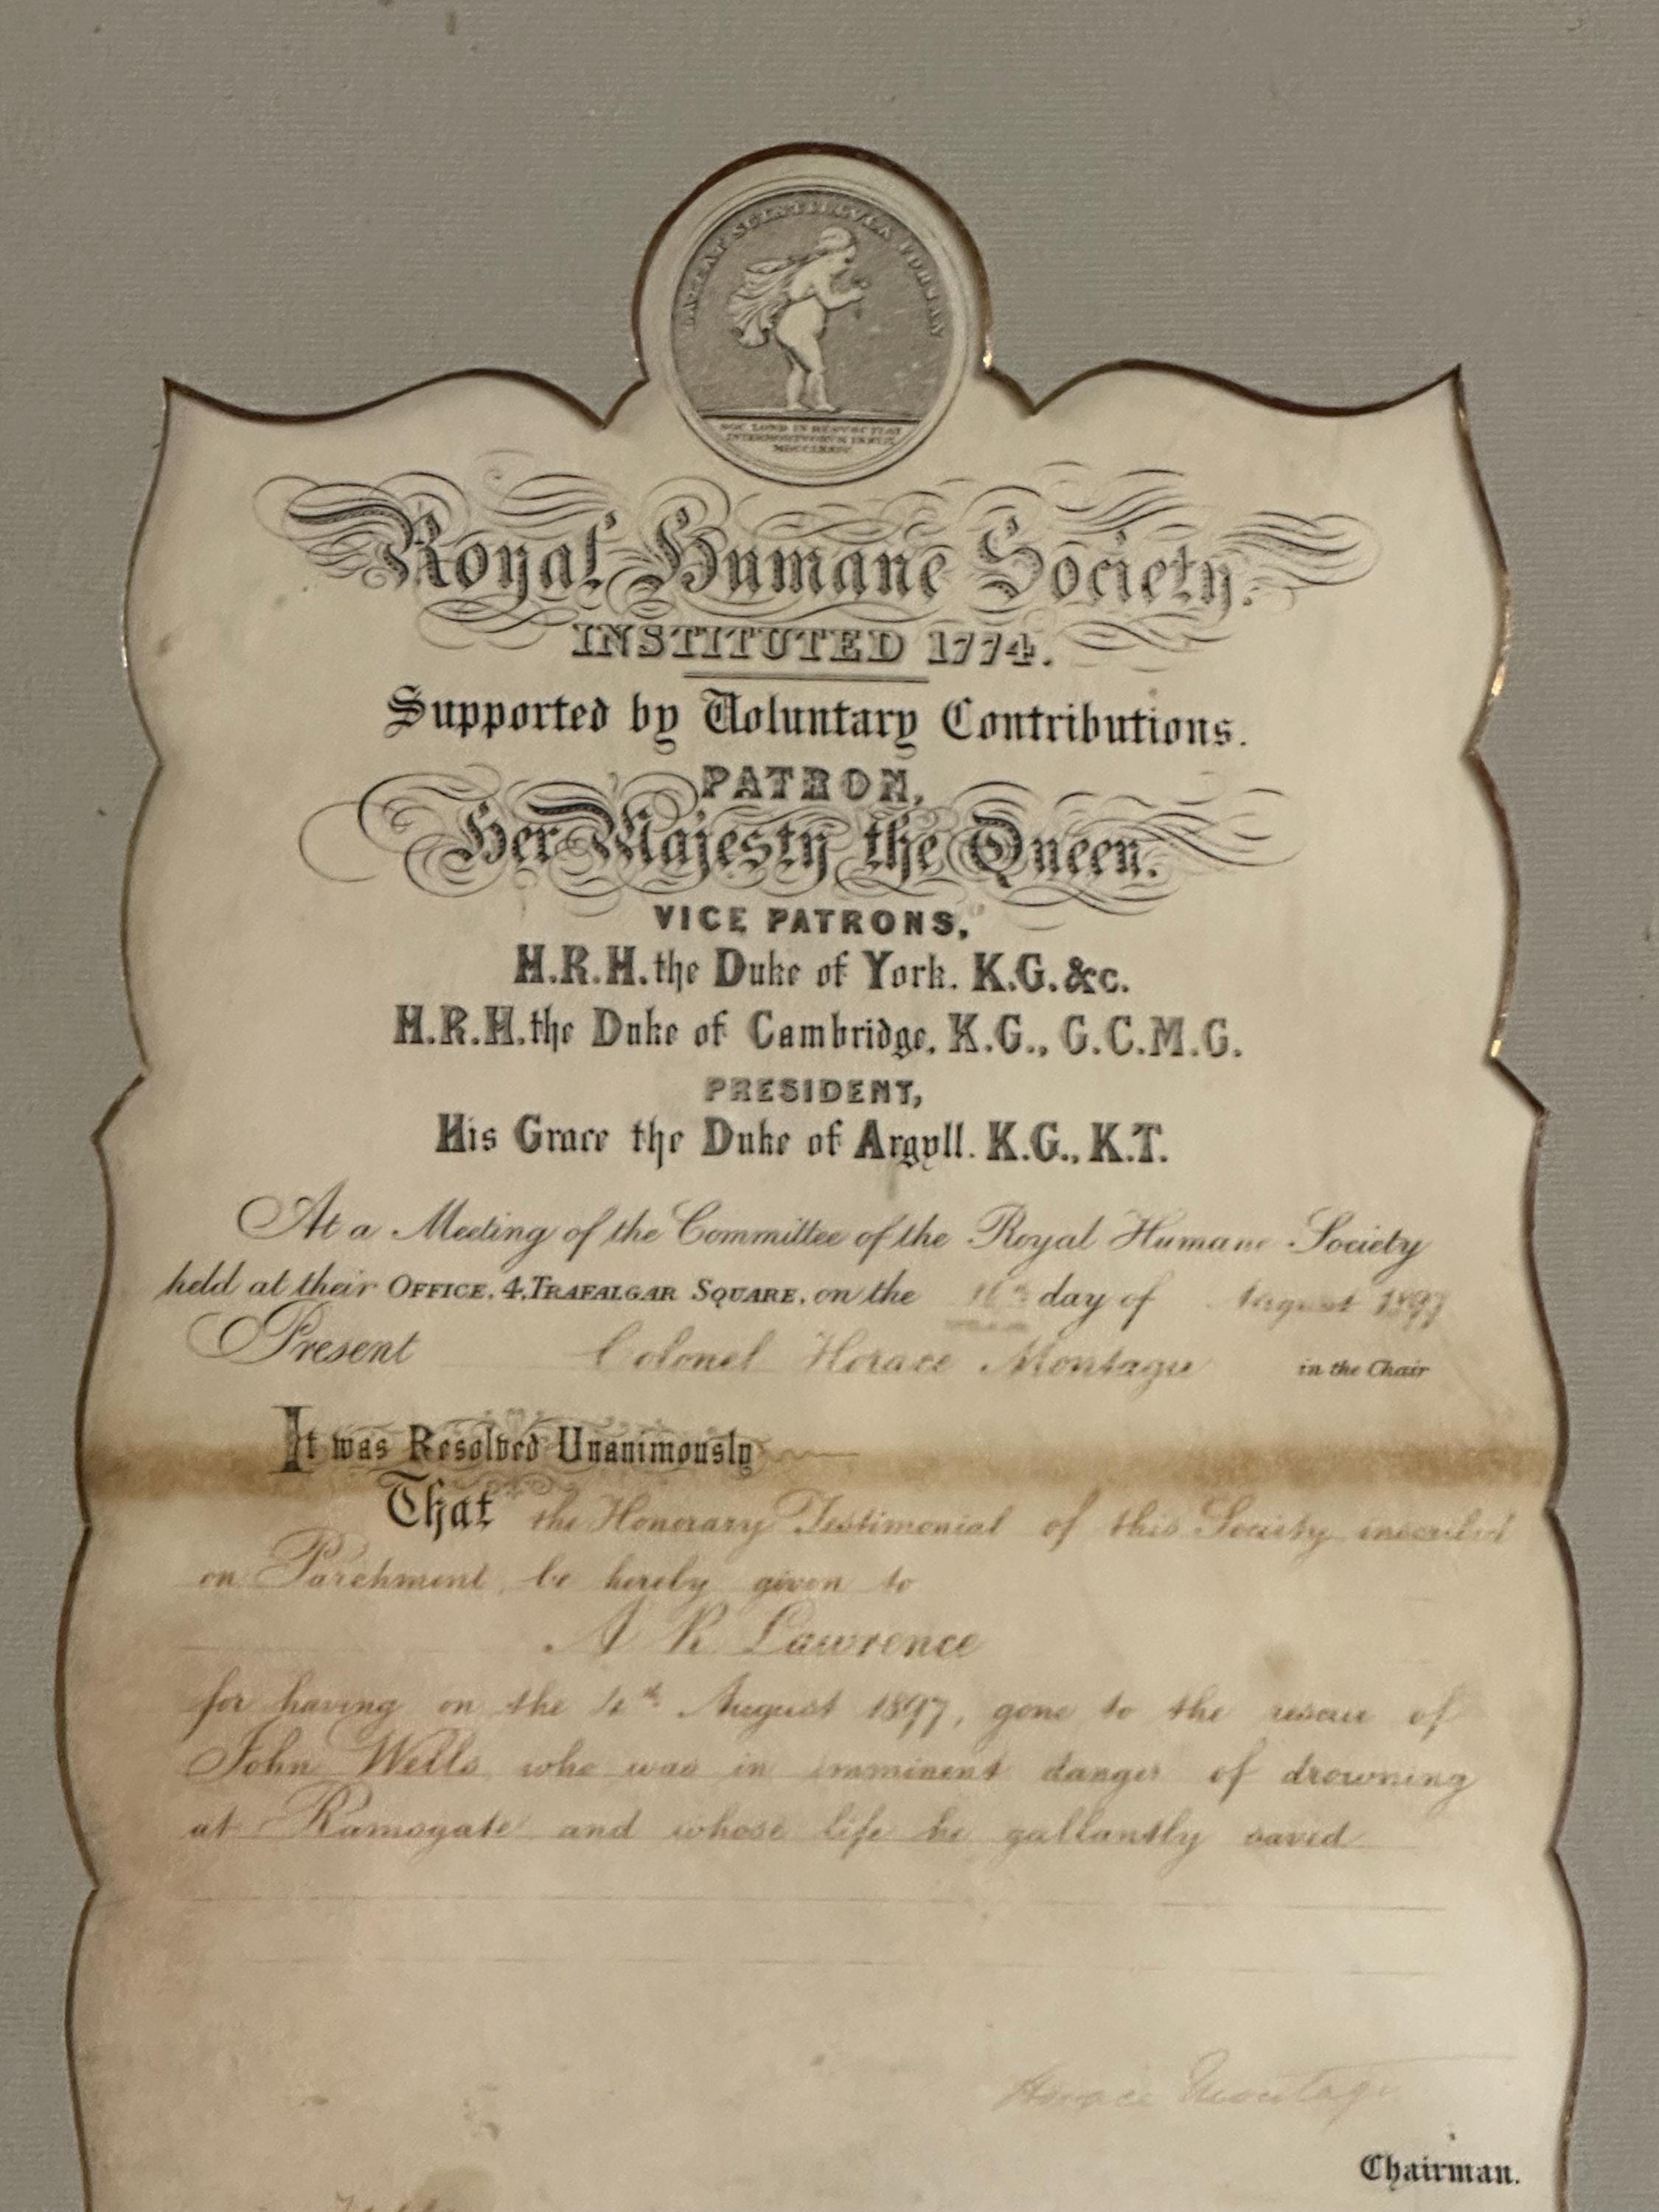 LATEAT SCINTILLVLA FORSAN
SOC. LOND. IN RESVSCITAT
INTERMORTVORVM INSTIT.
MDCCLXXIV
Royal Humane Society.
INSTITUTED 1774.
Supported by Voluntary Contributions.
PATRON,
Her Majesty the Queen.
VICE PATRONS,
H.R.H. the Duke of York. K.G. &c.
H.R.H. the Duke of Cambridge, K.G., G.C.M.G.
PRESIDENT,
His Grace the Duke of Argyll. K.G., K.T.
At a Meeting of the Committee of the Royal Humane Society
held at their OFFICE, 4, TRAFALGAR SQUARE, on the day of August 1897
Present Colonel Horace Montagu in the Chair
It was Resolved Unanimously
That the Honorary Testimonial of this Society inscribed
on Parchment, be hereby given to
A R Lawrence
for having on the 4th August 1897, gone to the rescue of
John Wells who was in imminent danger of drowning
at Ramsgate and whose life he gallantly saved
Horace Montagu
Chairman.